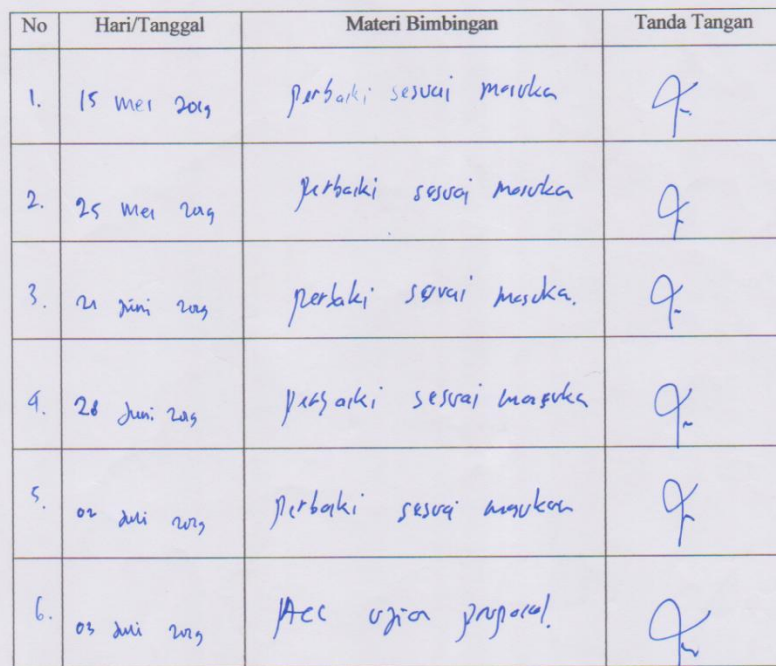 No Hari/Tanggal Materi Bimbingan Tanda Tangan
1. 15 Mei 2019 perbaiki sesuai masuka
2. 25 Mei 2019 perbaiki sesuai masukan
3. 21 Juni 2019 perbaiki sesuai masuka.
4. 28 Juni 2019 perbaiki sesuai masuka
5. 02 Juli 2019 perbaiki sesuai masukan
6. 03 Juli 2019 Acc ujian proposal.